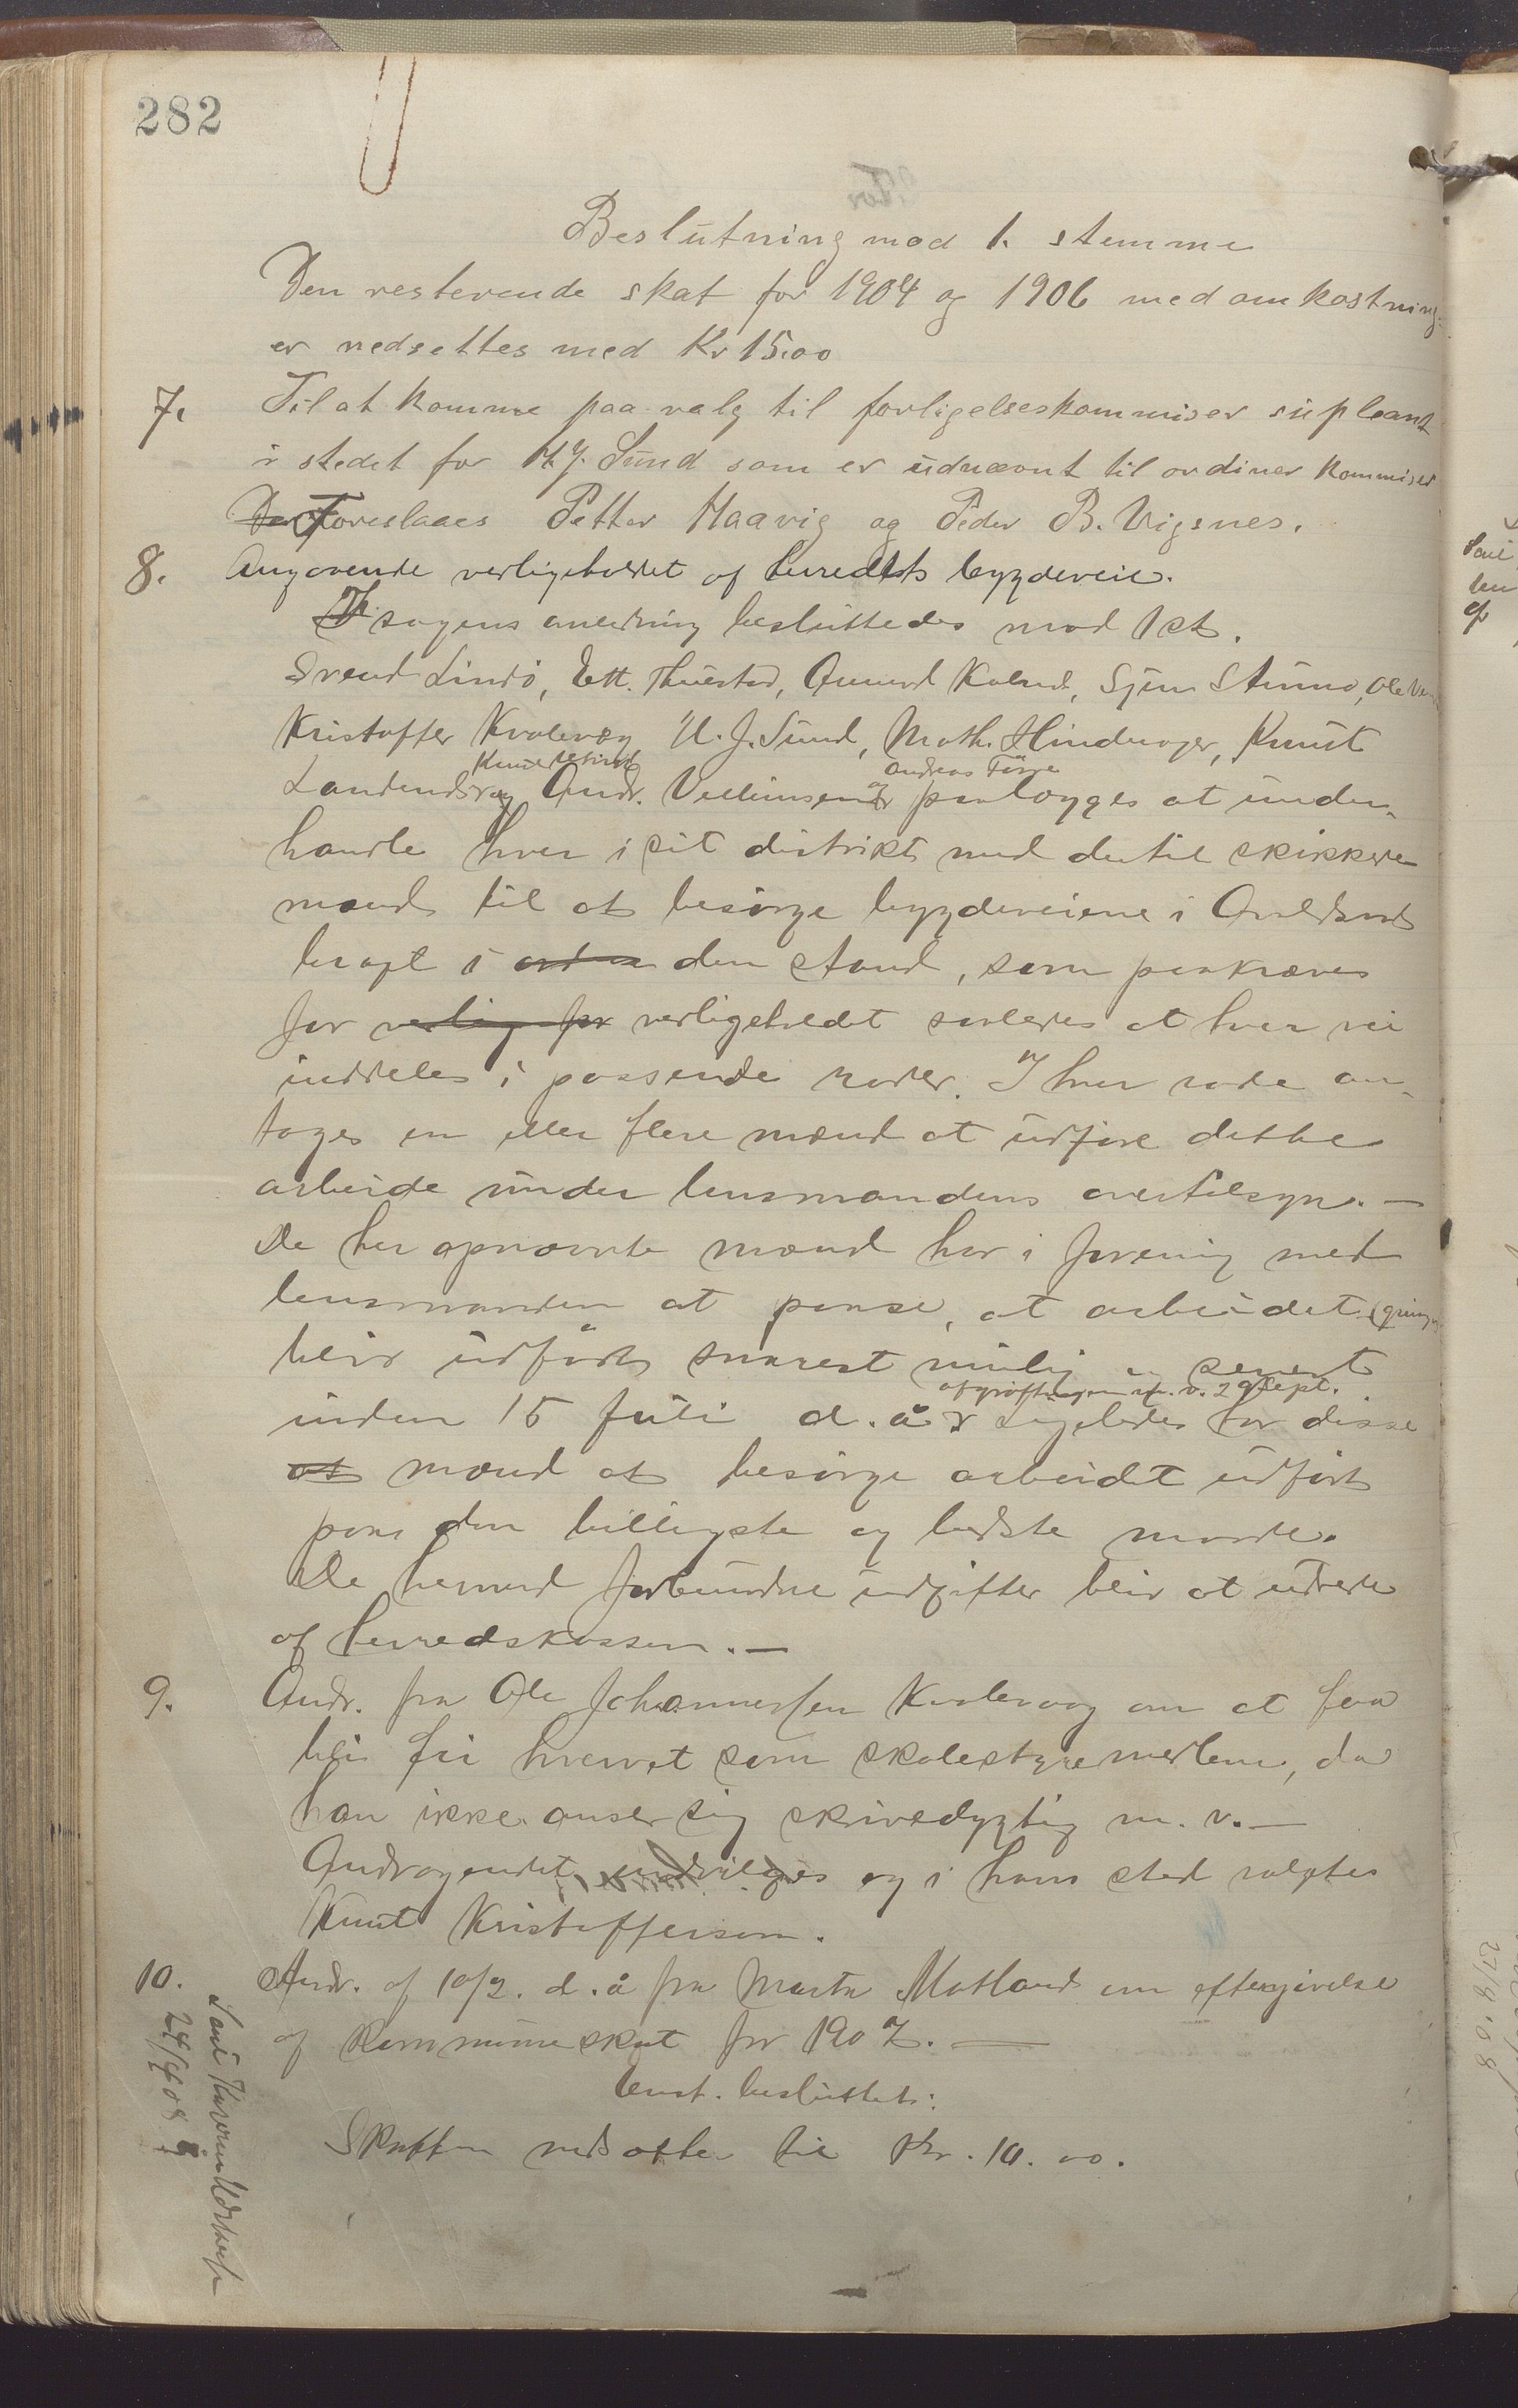 282
Beslutning mod 1. stemme
Den resterende skat for 1904 og 1906 med omkostning-
er nedsettes med Kr 15.00
7. Til at komme paa valg til forligelseskommiser supleant
i stedet for H.J. Sund som er udnævnt til ordinær kommiser
Foreslaaes Petter Haavig og Peder B. Vigsnes.
8. Angaaende vedligeholdet af herredets bygdeveie.
I sagens anledning besluttedes mod 1 st.
Svend Lindø, Amund Kolnes, Sjur Stunnø, Ole
Kristoffer Kvalevaag H. J. Sund, Math. Hinderager, Knut
andreasFørre
og Andr. Velliumsen og paalægges at under-
handle hver i sit distrikt med dertil skikkede
mænd til at besørge bygdeveiene i Avaldsnes
bragt i den stand, som paakræves
for vedlig for vedligeholdet saaledes at hver vei
inddeles i passende roder. I hver rode an-
tages en eller flere mænd at udføre dette
arbeide under lensmandens overtilsyn. —
De her opnævnte mænd har i forening med
lensmanden at paase, at arbeidet
blir udført snarest mulig og senest
afgrøftningen m. v. 29 Sept.
inden 15 Juli d. å. Ligeledes har disse
at mænd at besørge arbeidet udført
paa den billigste og bedste maade.
De hermed forbundne udgifter blir at udrede
af herredskassen. —
9. Andr. fra Ole Johannessen Kvalevaag om at faa
bli fri hvervet som skolestyremedlem, da
han ikke anser sig skrivedygtig m. v. —
Andragendet indvilges og i hans sted valgtes
Knut Kristoffersen.
10. Andr. af 10/2. d. å fra Marta Matland om eftergivelse
af kommuneskat for 1907. —
Enst. besluttet:
Skatten nedsættes til Kr. 10.00.
24/4 08
27/8 08